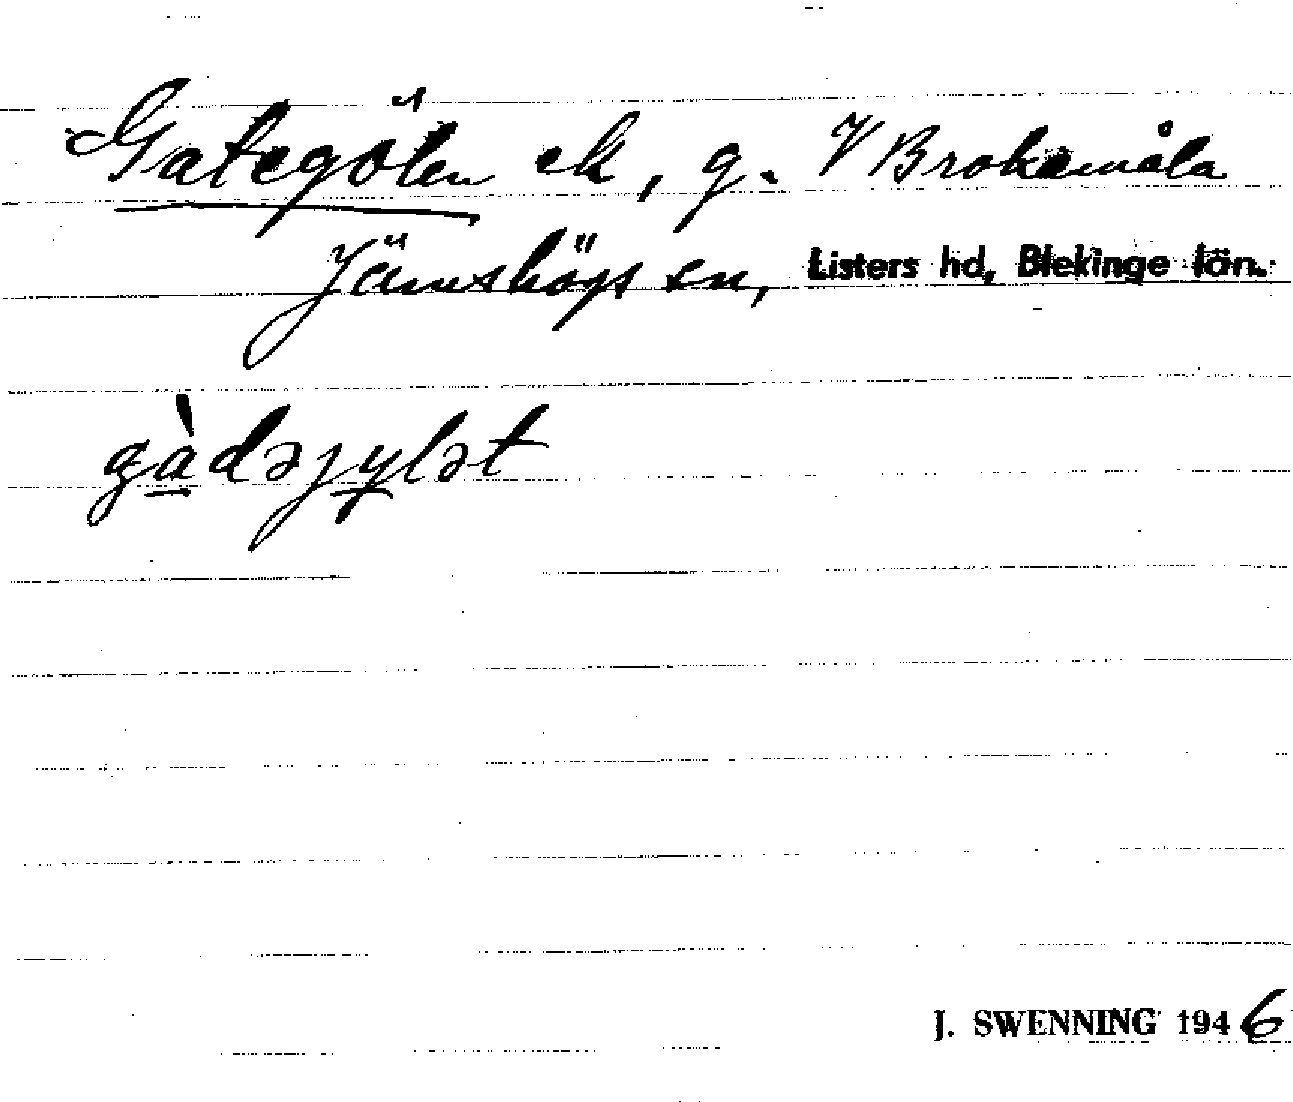 Gategölen ek, g. V Brokamåla
Jämshögs sn, Listers hd, Blekinge län.
gàdəjylət
J. SWENNING 1946